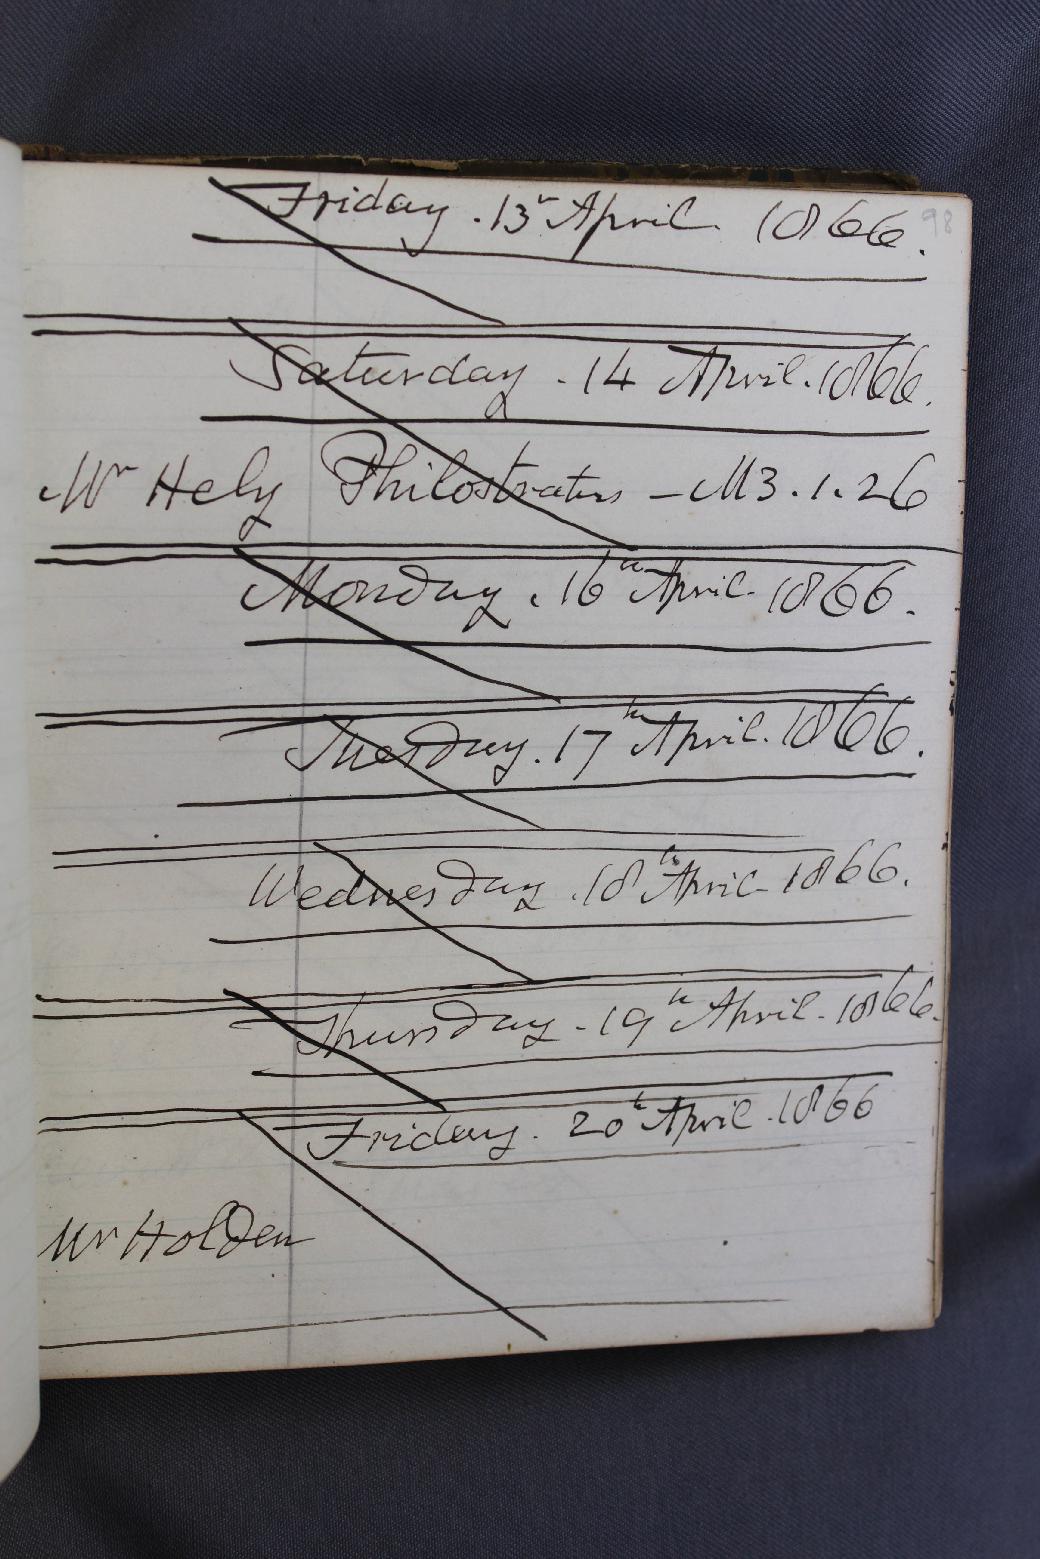 98
Friday . 13th April . 1866 .
Saturday . 14 April . 1866 .
Mr Hely Philostratus - M3 . 1 . 26
Monday . 16th April . 1866 .
Tuesday . 17th April . 1866 .
Wednesday . 18th April 1866 .
Thursday - 19th April . 1866 .
Friday . 20th April . 1866
Mr Holden